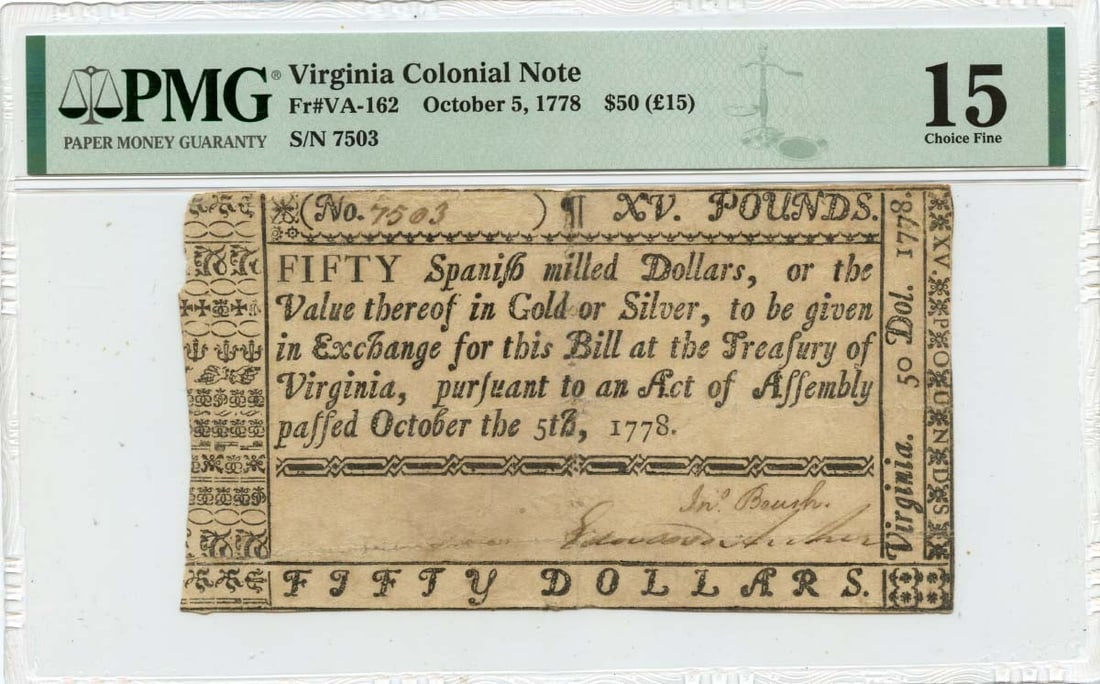 PMG® Virginia Colonial Note
Fr#VA-162 October 5, 1778 $50 (£15)
PAPER MONEY GUARANTY S/N 7503
15
Choice Fine
(No. 7503 ) ¶ XV. POUNDS.
FIFTY Spaniſh milled Dollars, or the
Value thereof in Gold or Silver, to be given
in Exchange for this Bill at the Treaſury of
Virginia, purſuant to an Act of Aſſembly
paſſed October the 5th, 1778.
Jnº. Boush.
Edward Archer
FIFTY DOLLARS.
Virginia. 50 Dol. 1778.
XV. POUNDS